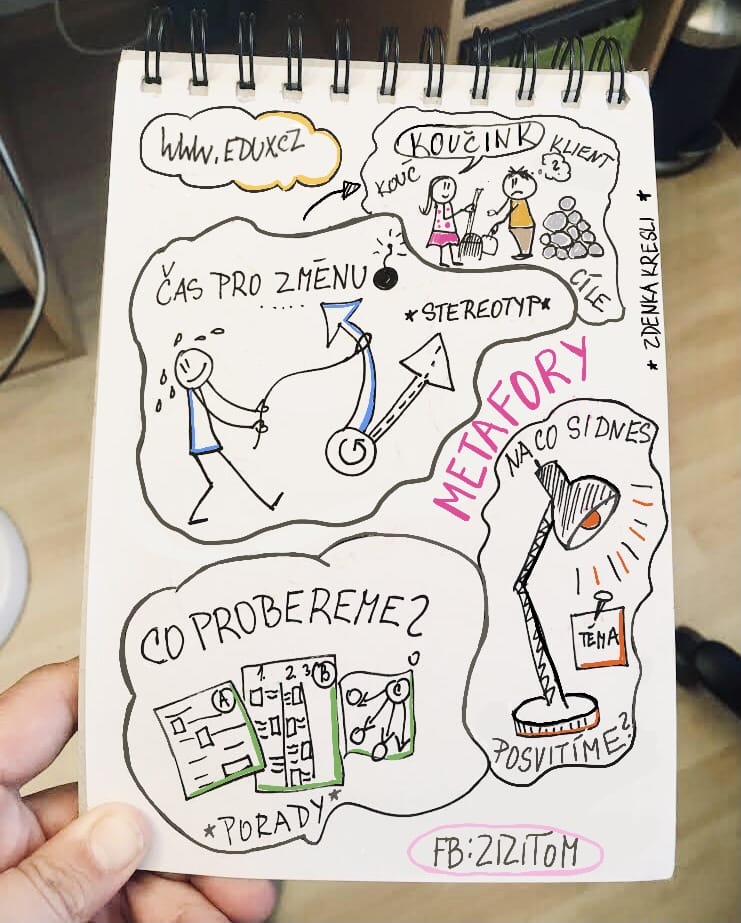 WWW.EDUX.CZ
KOUČINK
KOUČ
KLIENT
?
CÍLE
* ZDENKA KRESLI *
ČAS PRO ZMĚNU
*STEREOTYP*
METAFORY
NA CO SI DNES
TÉMA
POSVITÍME?
CO PROBEREME?
A
1. 2. 3. B
C
*PORADY*
FB:ZIZITOM